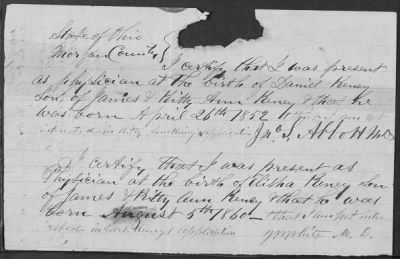 State of Ohio
Morgan County
I certify that I was present
as physician at the birth of Daniel Keney
Son of James & Kitty Ann Keney & that he
was born April 26th 1852
interested in Kitty Ann Keney's application Jno. S. Abbott M.D.
I certify that I was present as
Physician at the birth of Elisha Keney Son
of James & Kitty Ann Keney & that he was
born August 5th 1860 that I am not inter
ested in Keney's application White M. D.